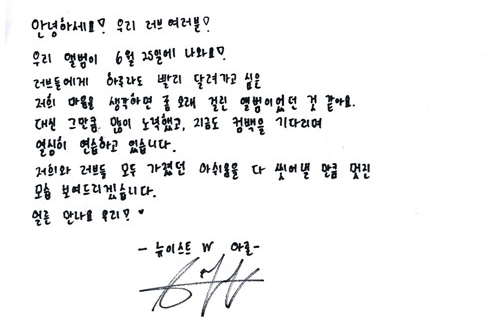 안녕하세요? 우리 러브 여러분?
우리 앨범이 6월 25일에 나와요?
러브들에게 하루라도 빨리 달려가고 싶은
저희 마음을 생각하면 좀 오래 걸린 앨범이었던 것 같아요.
대신 그만큼 많이 노력했고, 지금도 컴백을 기다리며
열심히 연습하고 있습니다.
저희와 러브들 모두 가졌던 아쉬움을 다 씻어낼 만큼 멋진
모습 보여드리겠습니다.
얼른 만나요 우리? ♥
- 뉴이스트 W 아론 -